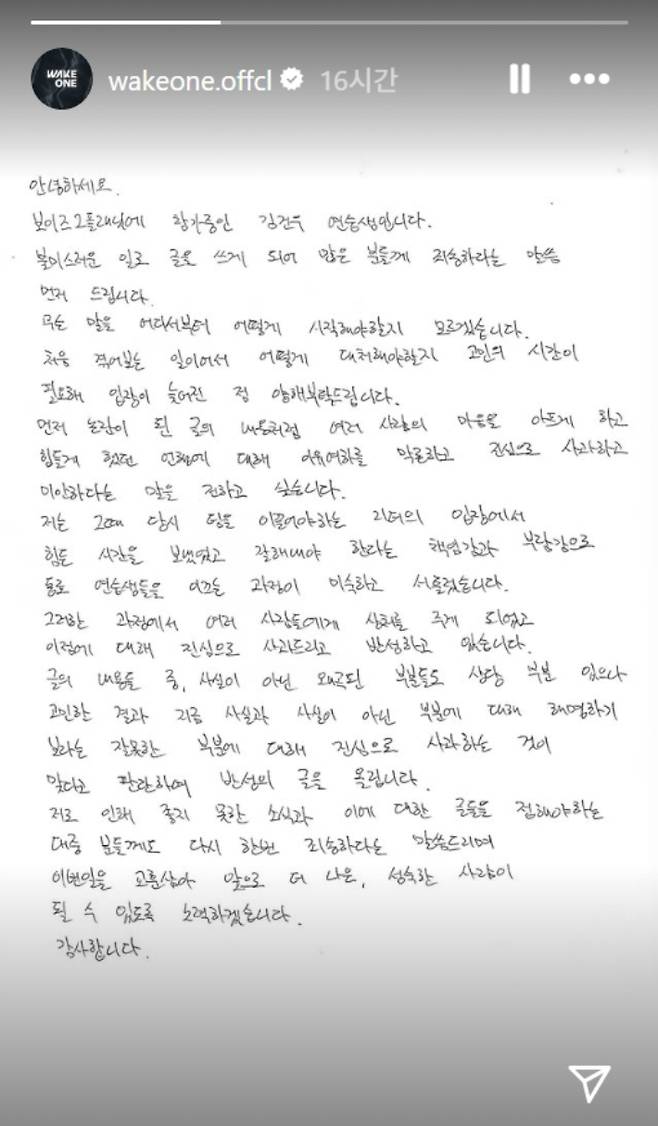 WAKE
ONE
wakeone.offcl
16시간
안녕하세요.
보이즈2플래닛에 참가중인 김건우 연습생입니다.
불미스러운 일로 글을 쓰게 되어 많은 분들께 죄송하다는 말씀
먼저 드립니다.
무슨 말을 어디서부터 어떻게 시작해야할지 모르겠습니다.
처음 겪어보는 일이어서 어떻게 대처해야할지 고민의 시간이
필요해 입장이 늦어진 점 양해부탁드립니다.
먼저 논란이 된 글의 내용처럼 여러 사람의 마음을 아프게 하고
힘들게 했던 언행에 대해 이유여하를 막론하고 진심으로 사과하고
미안하다는 말을 전하고 싶습니다.
저는 그때 당시 팀을 이끌어야하는 리더의 입장에서
힘든 시간을 보냈었고 잘해내야 한다는 책임감과 부담감으로
동료 연습생들을 이끄는 과정이 미숙하고 서툴렀습니다.
그러한 과정에서 여러 사람들에게 상처를 주게 되었고
이점에 대해 진심으로 사과드리고 반성하고 있습니다.
글의 내용들 중, 사실이 아닌 왜곡된 부분들도 상당 부분 있으나
고민한 결과 지금 사실과 사실이 아닌 부분에 대해 해명하기
보다는 잘못한 부분에 대해 진심으로 사과하는 것이
맞다고 판단하여 반성의 글을 올립니다.
저로 인해 좋지 못한 소식과 이에 대한 글들을 접해야하는
대중 분들께도 다시 한번 죄송하다는 말씀드리며
이번일을 교훈삼아 앞으로 더 나은, 성숙한 사람이
될 수 있도록 노력하겠습니다.
감사합니다.